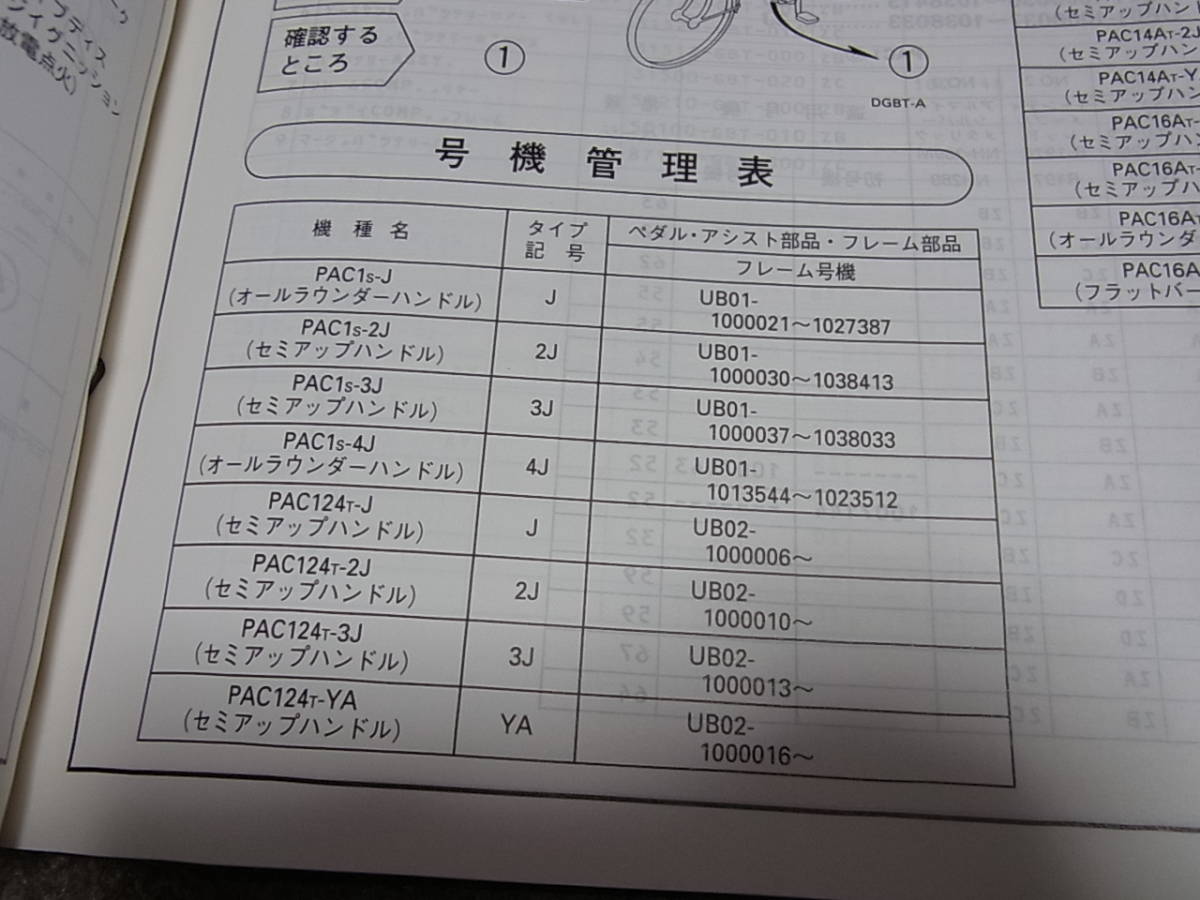 放電点火)
確認する
ところ
①
①
DGBT-A
号機管理表
機種名
タイプ
記号
ペダル・アシスト部品・フレーム部品
フレーム号機
PAC1S-J
(オールラウンダーハンドル)
J
UB01-
1000021〜1027387
PAC1S-2J
(セミアップハンドル)
2J
UB01-
1000030〜1038413
PAC1S-3J
(セミアップハンドル)
3J
UB01-
1000037〜1038033
PAC1S-4J
(オールラウンダーハンドル)
4J
UB01-
1013544〜1023512
PAC124T-J
(セミアップハンドル)
J
UB02-
1000006〜
PAC124T-2J
(セミアップハンドル)
2J
UB02-
1000010〜
PAC124T-3J
(セミアップハンドル)
3J
UB02-
1000013〜
PAC124T-YA
(セミアップハンドル)
YA
UB02-
1000016〜
(セミアップハンド
PAC14AT-2J
(セミアップハン
PAC14AT-Y
(セミアップハン
PAC16AT-
(セミアップハン
PAC16AT-
(セミアップハン
PAC16A
(オールラウンダ
PAC16A
(フラットバー